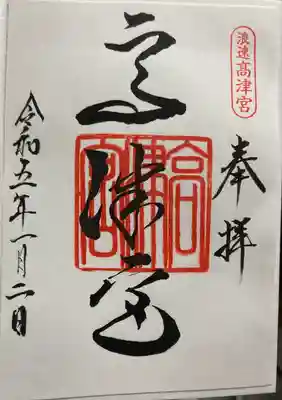 浪速高津宮
奉拝
高津宮
高津宮
令和五年一月二日